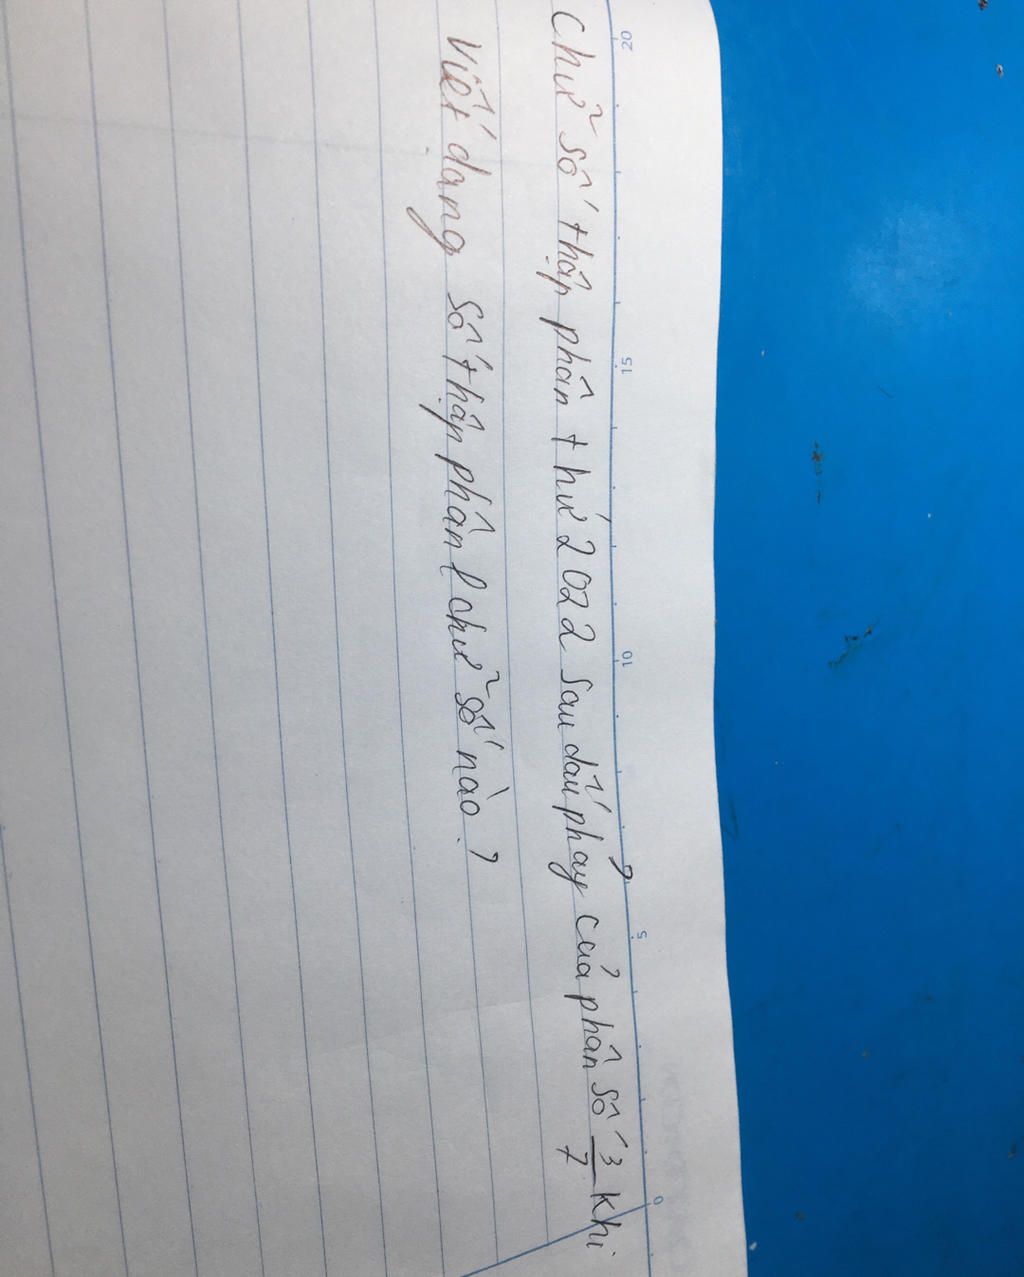 Chữ số thập phân thứ 2022 sau dấu phảy của phân số 3/7 khi
viết dạng số thập phân l chữ số nào?
20 15 10 5 0